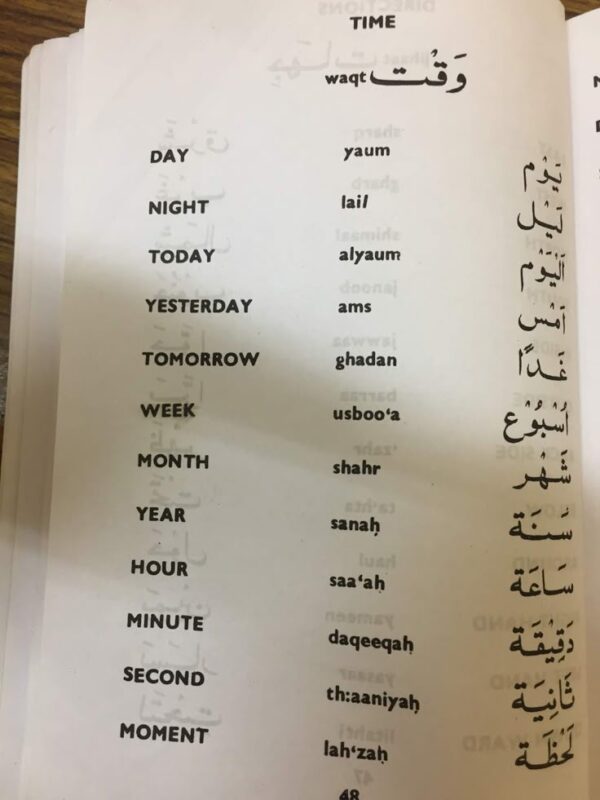 TIME
waqt وَقْت
DAY yaum يَوْم
NIGHT lail لَيْل
TODAY alyaum اَلْيَوْم
YESTERDAY ams اَمْس
TOMORROW ghadan غَدًا
WEEK usboo‘a اُسْبُوْع
MONTH shahr شَهْر
YEAR sanaḥ سَنَة
HOUR saa‘aḥ سَاعَة
MINUTE daqeeqaḥ دَقِيْقَة
SECOND th:aaniyaḥ ثَانِيَة
MOMENT lah‘zaḥ لَحْظَة
48